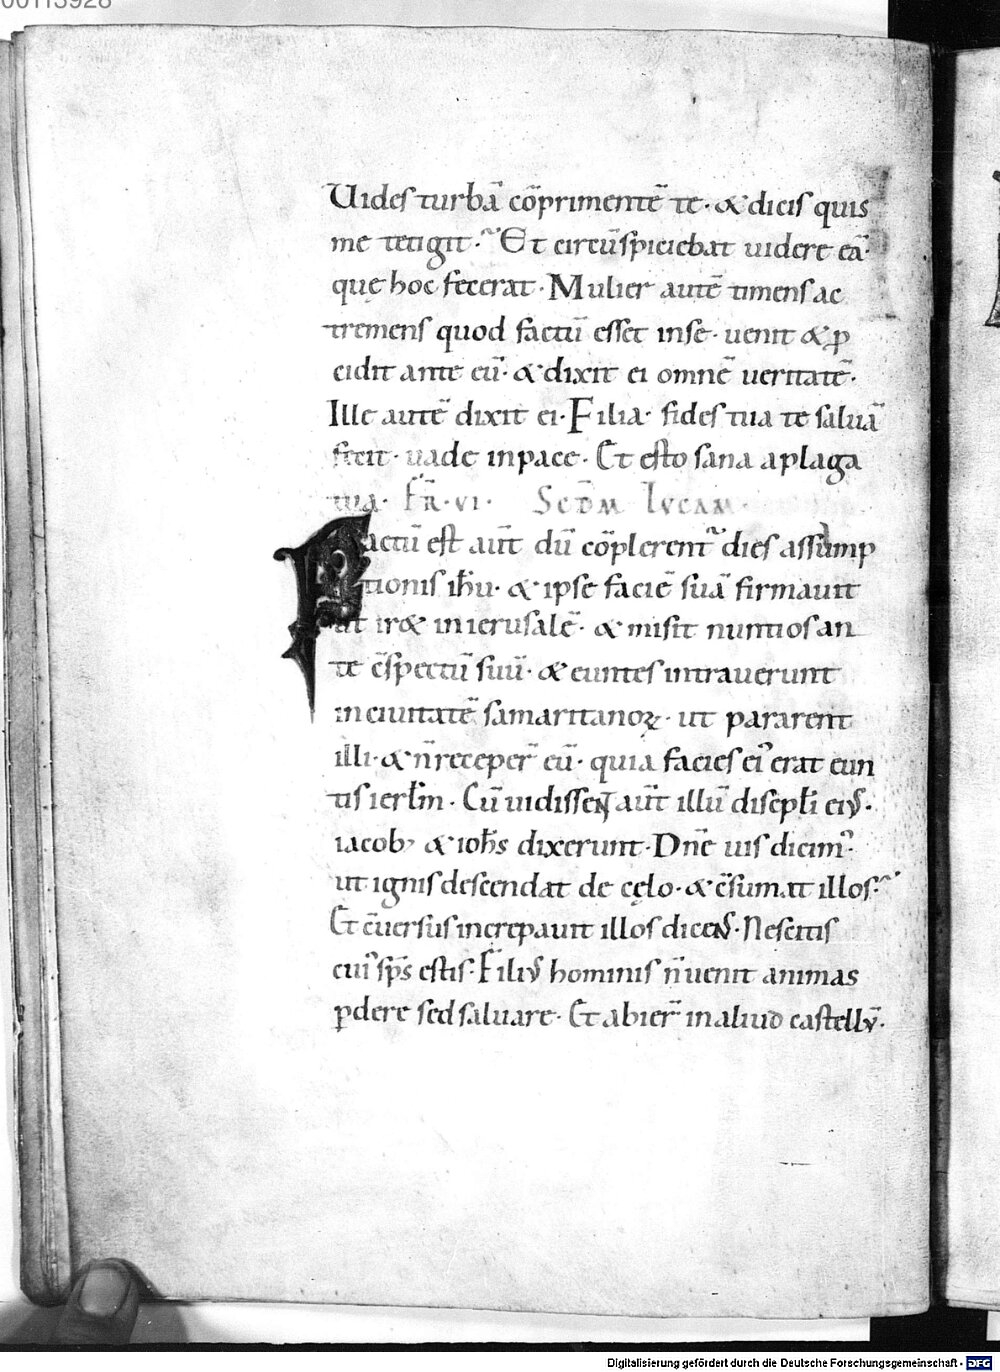 00113928
Uides turbā cōprimentē te· & dicis quis
me tetigit· Et circūspiciebat uidere eā·
quę hoc fecerat· Mulier autē timens ac
tremens quod factū esset inse· uenit & ꝓ
cidit ante eū· & dixit ei omnē ueritatē·
Ille autē dixit ei· Filia· fides tua te saluā
fecit· uade inpace· Et esto sana aplaga
tua· FR̄·VI· SCD̄M LVCAM·
Factū est aut̄ dū cōplerent᷑ dies assump
tionis ihū· & ipse faciē suā firmauit
ut ir& inierusalē· & misit nuntios an
te c̄spectū suū· & euntes intrauerunt
inciuitatē samaritanoꝝ· ut pararent
illi· & n̄ receper̄ eū· quia facies ei᾽ erat eun
tis ierl̄m· Cū uidissent aut̄ illū discipl̄i eiꝰ·
iacob᾽ & ioh̄s dixerunt· Dn̄e uis dicim᾽·
ut ignis descendat de cęlo· & c̄sumat illos·
Et c̄uersus increpauit illos dicens· Nescitis
cui᾽ sp̄s estis· Filiꝰ hominis n̄ uenit animas
ꝑdere sed saluare· Et abier̄ inaliud castellū·
Digitalisierung gefördert durch die Deutsche Forschungsgemeinschaft - DFG